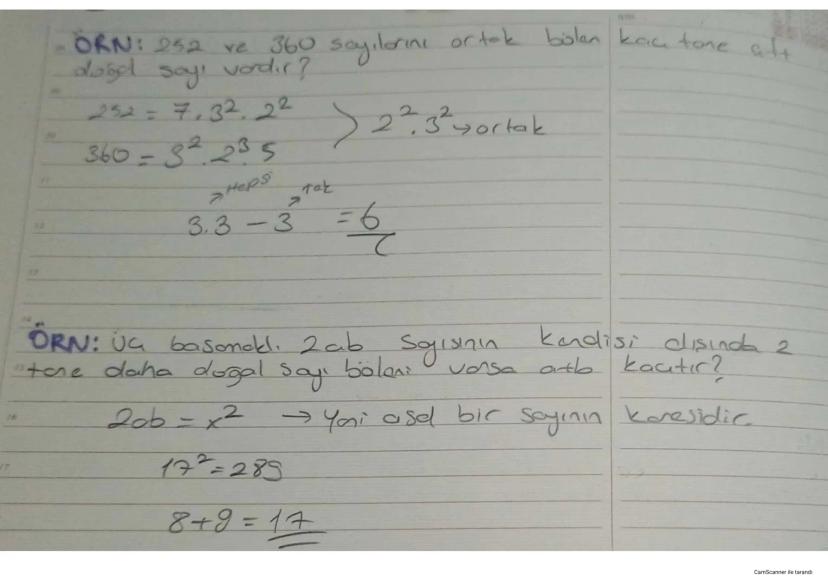 ÖRN: 252 ve 360 sayılarını ortak bölen kaç tane çift
doğal sayı vardır?
252 = 7.3².2²
2².3² → ortak
360 = 3².2³.5
→ Hepsi → Tek
3.3 - 3 = 6
ÖRN: Üç basamaklı 2ab sayısının kendisi dışında 2
tane daha doğal sayı böleni varsa a+b kaçtır?
2ab = x² → Yani asal bir sayının karesidir.
17² = 289
8+9 = 17
CamScanner ile tarandı